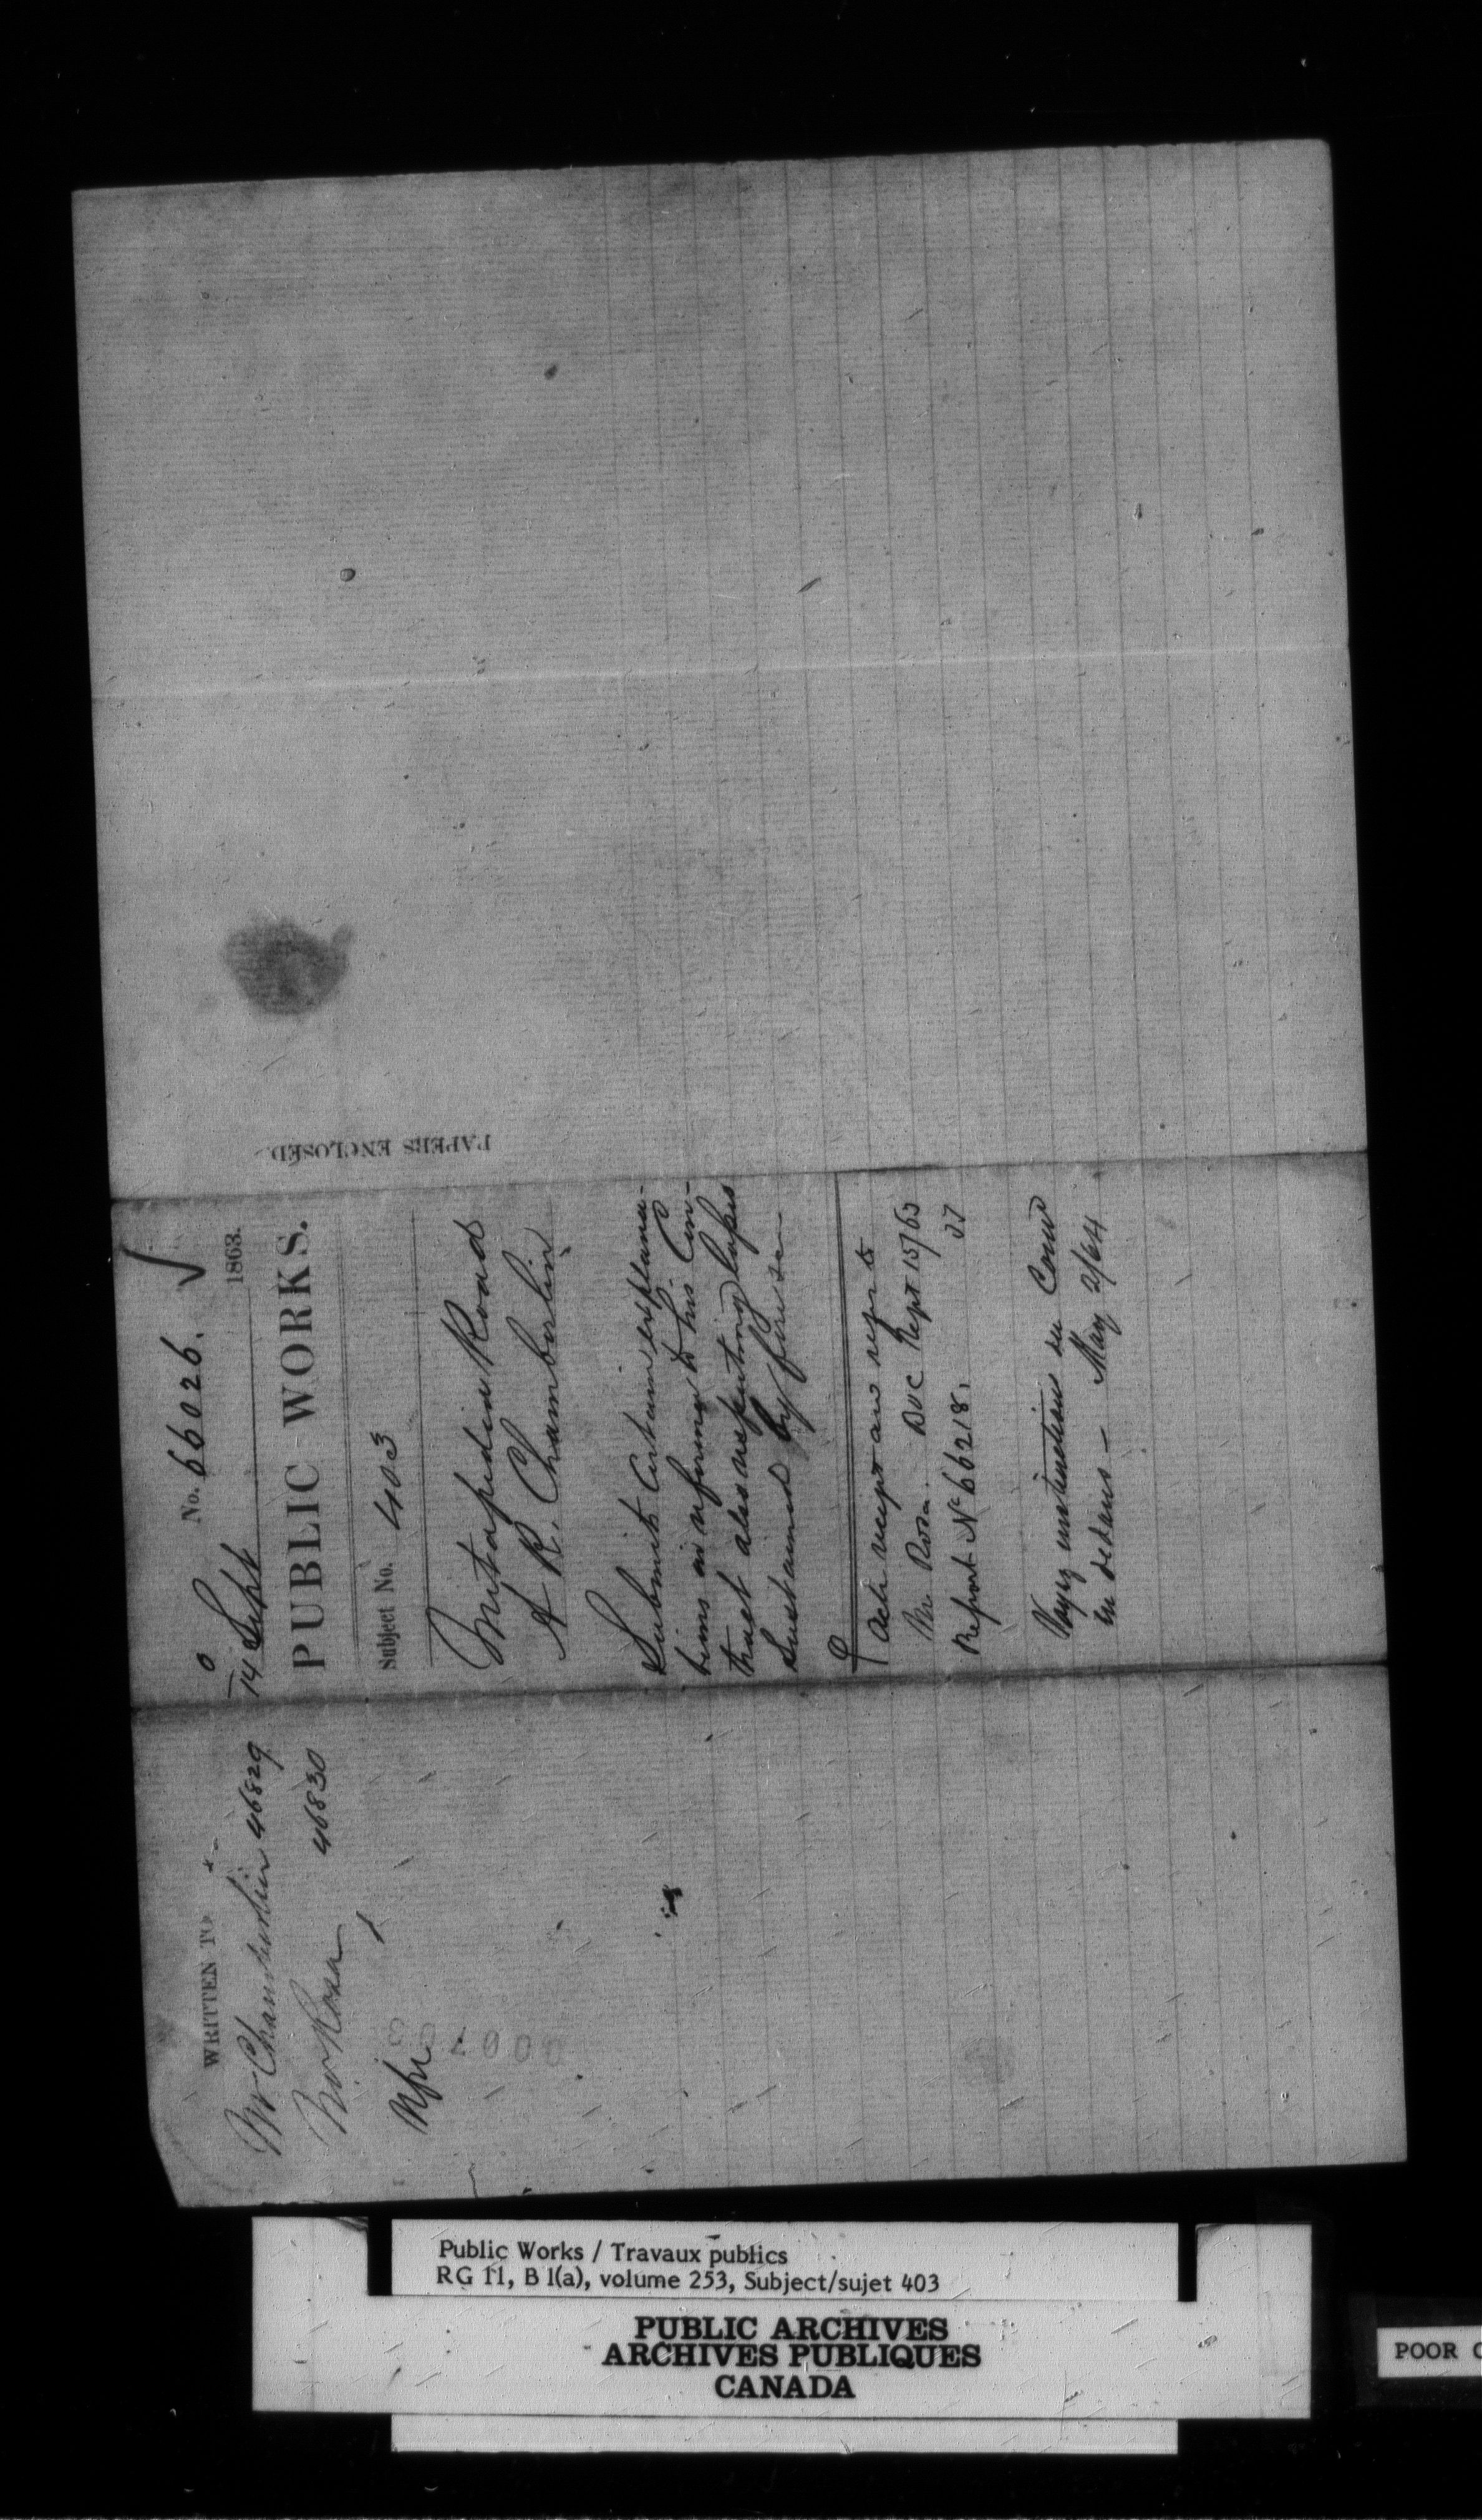 WRITTEN TO
Mr Chamberlin 46829
Mr Rosa 46830
No. 66026.
14 Sept 1863.
PUBLIC WORKS.
Subject No. 403
Metapedia Road
A R. Chamberlin
Submits certain explana-
tions in reference to his Con-
tract also respecting losses
sustained by fire &c
Ack receipt and refer to
Mr Rosa. Sept 15/63
Report No 66218.
Voyez instructions du
en dedans — May 2/64
PAPERS ENCLOSED.
Public Works / Travaux publics
RG 11, B 1(a), volume 253, Subject/sujet 403
PUBLIC ARCHIVES
ARCHIVES PUBLIQUES
CANADA
POOR